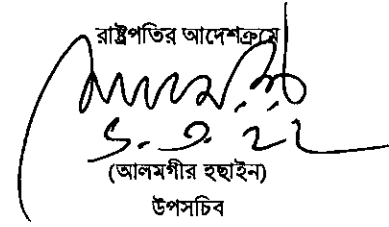 রাষ্ট্রপতির আদেশক্রমে
(আলমগীর হুছাইন)
উপসচিব